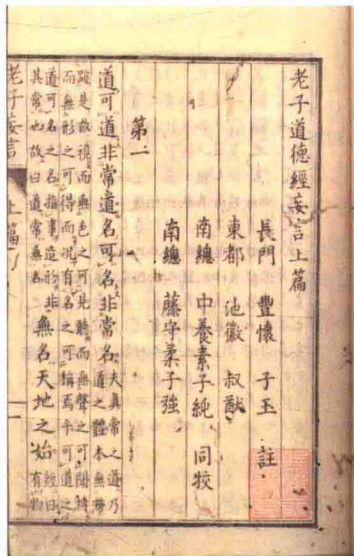 老子道德經妄言上篇
長門 豐懷 子玉 註
東都 池徽 叔猷
南總 中養素子純 同校
南總 藤守柔子強
第一
道可道非常道名可名非常名夫真常之道乃道之體本無聲
跡是故視而無色之可見聽而無聲之可聞搏
而無形之可得而況有名之可稱焉乎可道之
道可名之名指事造形非 無名天地之始經曰有物
其常也故曰道常無名
老子妄言 上篇 一